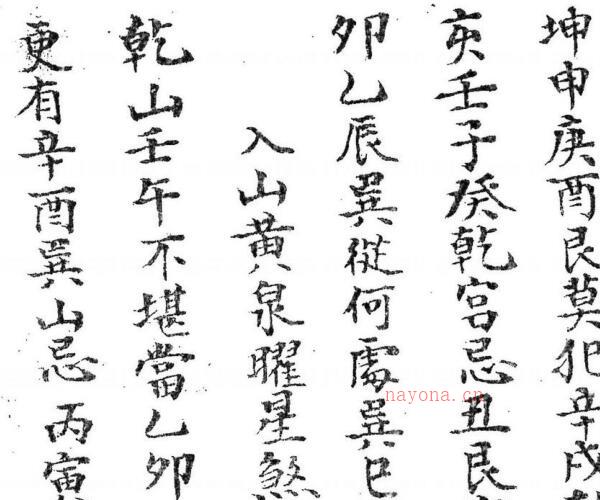 坤申庚酉艮莫犯辛戌
亥壬子癸乾宮忌丑艮
卯乙辰巽從何處巽巳
入山黄泉曜星煞
乾山壬午不堪當乙卯
更有辛酉巽山忌丙寅
nayona.cn